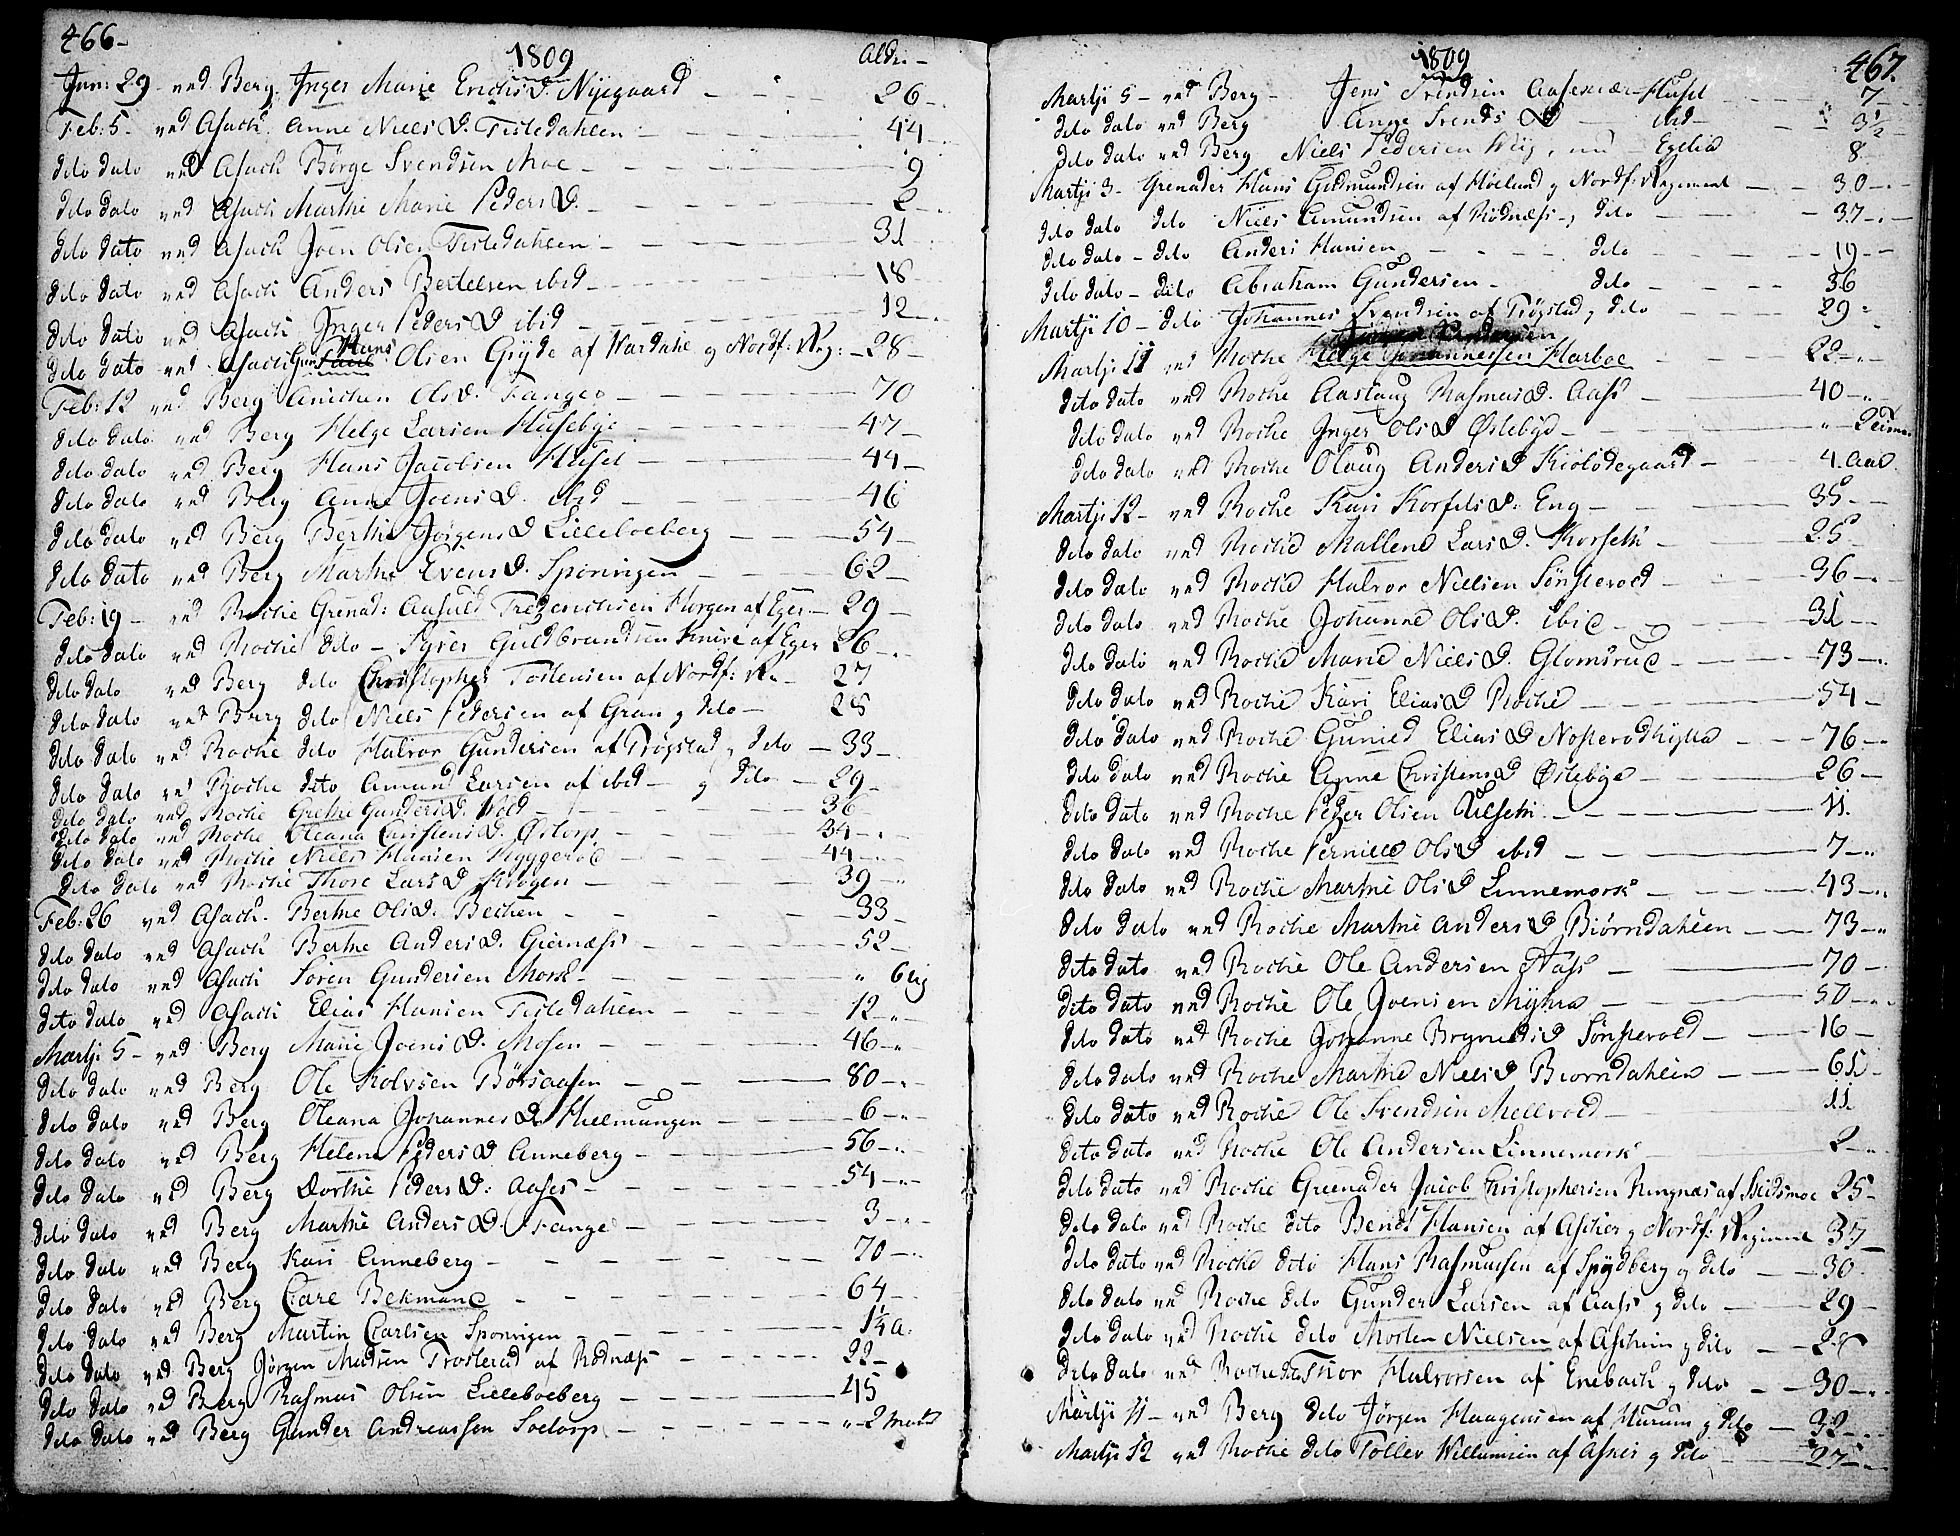 466-
1809
Aldr. -
Jan: 29 - ved Berg. Inger Marie Erichs D. Nyegaard - 26 -
Feb: 5 - ved Asach. Anne Niels D. Tistedahlen - 44 -
dito dato ved Asach Børge Svendsen Moe - 9
dito dato ved Asach Marthe Marie Peders D. - 2 -
dito dato ved Asach Joen Olsen Tistedahlen - 31 -
dito dato ved Asach Anders Bertelsen ibid - 18
dito dato ved Asach Inger Peders D ibid - 12 -
dito dato ved Asach Hans Olsen Gryde af Wardahl og Nordf: Reg: - 28 -
Feb: 12 ved Berg Anichen Ols D. Fange - 70
dito dato ved Berg Helge Larsen Husebye - 47 -
dito dato ved Berg Hans Jacobsen Husel - 44 -
dito dato ved Berg Anne Joens D. ibid - 46
dito dato ved Berg Berthe Jørgens D Lilleboeberg - 54 -
dito dato ved Berg Marthe Evens D. Sponingen - 62 -
Feb: 19 - ved Roche Grenad: Aasuld Frederichsen Horgen af Eger - 29 -
dito dato ved Roche dito - Syver Guldbrandsen Knive af Eger 26 -
dito dato ved Berg dito Christopher Tostensen af Nordf: R. - 27
dito dato ved Berg dito Niels Pedersen af Gran og dito - 28
dito dato ved Roche dito Halvor Gundersen af Trøgstad og dito - 33 -
dito dato ved Roche dito Amund Larsen af ibid - og dito - 29 -
dito dato ved Roche Grethe Gunders D. Wold - 36 -
dito dato ved Roche Oleana Christens D. Østorp - 34 -
dito dato ved Roche Niels Hansen Skyggerød - 44 -
dito dato ved Roche Thore Lars D Krogen - 39 -
Feb: 26 ved Asach. Berthe Ols D. Bechen - 33 -
dito dato ved Asach Berthe Anders D. Giernæss - 52 -
dito dato ved Asach Søren Gundersen Mork - " 6 ug
dito dato ved Asach Elias Hansen Tistedahlen - 12 -
Martji 5 - ved Berg Marie Joens D. Mosen - 46 -
dito dato ved Berg Ole Kolvsen Børsaasen - 80 -
dito dato ved Berg Oleana Johannes D. Hielmungen - 6 -
dito dato ved Berg Helene Peders D Anneberg - 56 -
dito dato ved Berg Dorthe Peders D: Aases - 54 -
dito dato ved Berg Marthe Anders D. Fange - 3 -
dito dato ved Berg Kari Anneberg - 70 -
dito dato ved Berg Carl Bekmand - 64 -
dito dato ved Berg Martin Carlsen Sponingen - 1¼ a.
dito dato ved Berg Jørgen Madsen Trosterud af Rødnæss - 22 -
dito dato ved Berg Rasmus Olsen Lilleboeberg - 45
dito dato ved Berg Gunder Andreassen Soetorp - " 2 Maned
1809
467.
Martji 5 - ved Berg - Jens Svendsen Husel - 7 -
dito dato ved Berg Anne Svends D - ibid - 3½
dito dato ved Berg Niels Pedersen Wiig - 8 -
Martji 3 - Grenader Hans Gudmundsen af Høelund og Nordf: Regiment - 30 -
dito dato dito Niels Amundsen af Rødnæss - og dito - 37 -
dito dato - dito Anders Hansen - dito - 19 -
dito dato - dito Abraham Gundersen - dito - 36
dito dato
Martji 10 - dito Johannes Svendsen af Trøgstad og dito - 29 -
Martji 11 ved Roche Helge Johannessen Harboe - 22 -
dito dato ved Roche Aastaug Rasmus D. Aass - 40 -
dito dato ved Roche Inger Ols D Østebye - " 2 timer
dito dato ved Roche Olaug Anders D Kiølødegaard - 4. Aar.
Martji 12 - ved Roche Kari Korfits D. Eng - 35 -
dito dato ved Roche Mallene Lars D. Korseth - 25 -
dito dato ved Roche Halvor Nielsen Sønsterød - 36 -
dito dato ved Roche Johanne Ols D. ibid - 31 -
dito dato ved Roche Marie Niels D. Glomsrud - 73 -
dito dato ved Roche Kari Elias D Roche - 54 -
dito dato ved Roche Gunild Elias D Nosterødhytta - 76 -
dito dato ved Roche Anne Christens D Østebye - 26 -
dito dato ved Roche Peder Olsen Ulseth - 11.
dito dato ved Roche Pernille Ols D ibid - 7 -
dito dato ved Roche Marthe Ols D Linnemork - 43 -
dito dato ved Roche Marthe Anders D Biørndahlen - 73 -
dito dato ved Roche Ole Andersen Næss - 70 -
dito dato ved Roche Ole Joensen Myhra - 50 -
dito dato ved Roche Johanne Brynilds D Sønsterød - 16 -
dito dato ved Roche Marthe Niels D Biørndahlen - 65 -
dito dato ved Roche Ole Svendsen Mellerød - 11
dito dato ved Roche Ole Andersen Linnemork - 2 -
dito dato ved Roche Greenader Jacob Christophersen Ringnæs af Skedsmoe 25 -
dito dato ved Roche dito Bendt Hansen af Ascher og Nordf: Regiment 37 -
dito dato ved Roche dito Hans Rasmussen af Spydberg og dito - 30 -
dito dato ved Roche dito Gunder Larsen af Aass og dito - 29 -
dito dato ved Roche dito Morten Nielsen af Aschim og dito - 28
dito dato ved Roche dito Thor Halvorsen af Enebach og dito - 30 -
Martji 11 - ved Berg dito Jørgen Haagensen af Hurum og dito - 32 -
Martji 12 ved Roche dito Tollev Willumsen af Asnes og dito - 27 -